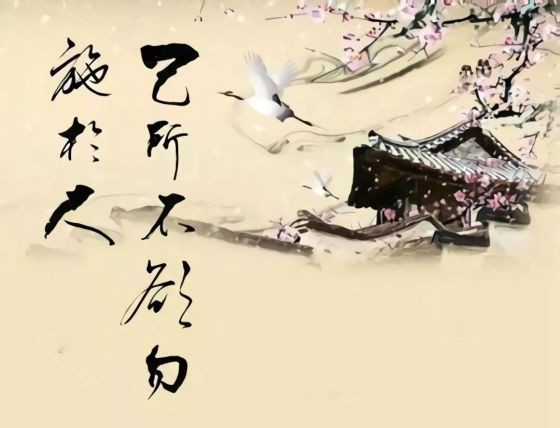 己所不欲勿
施於人